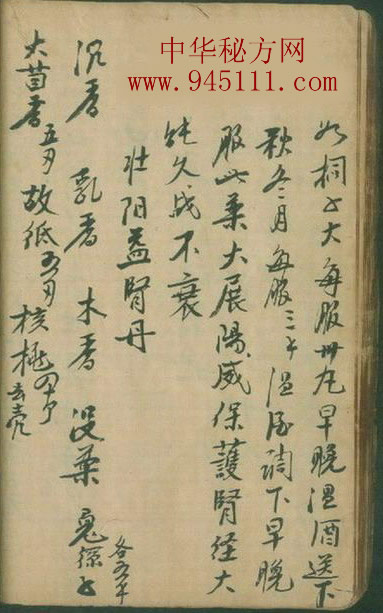 中华秘方网
www.945111.com
如桐子大每服卅丸早晚温酒送下
秋冬月每服三温酒調下早晚
服此藥大展陽威保護腎经大
能久战不衰
壮阳益腎丹
沉香 乳香 木香 没藥 兔絲子 各五
大茴香五刃 故纸五刃 核桃四十个去壳